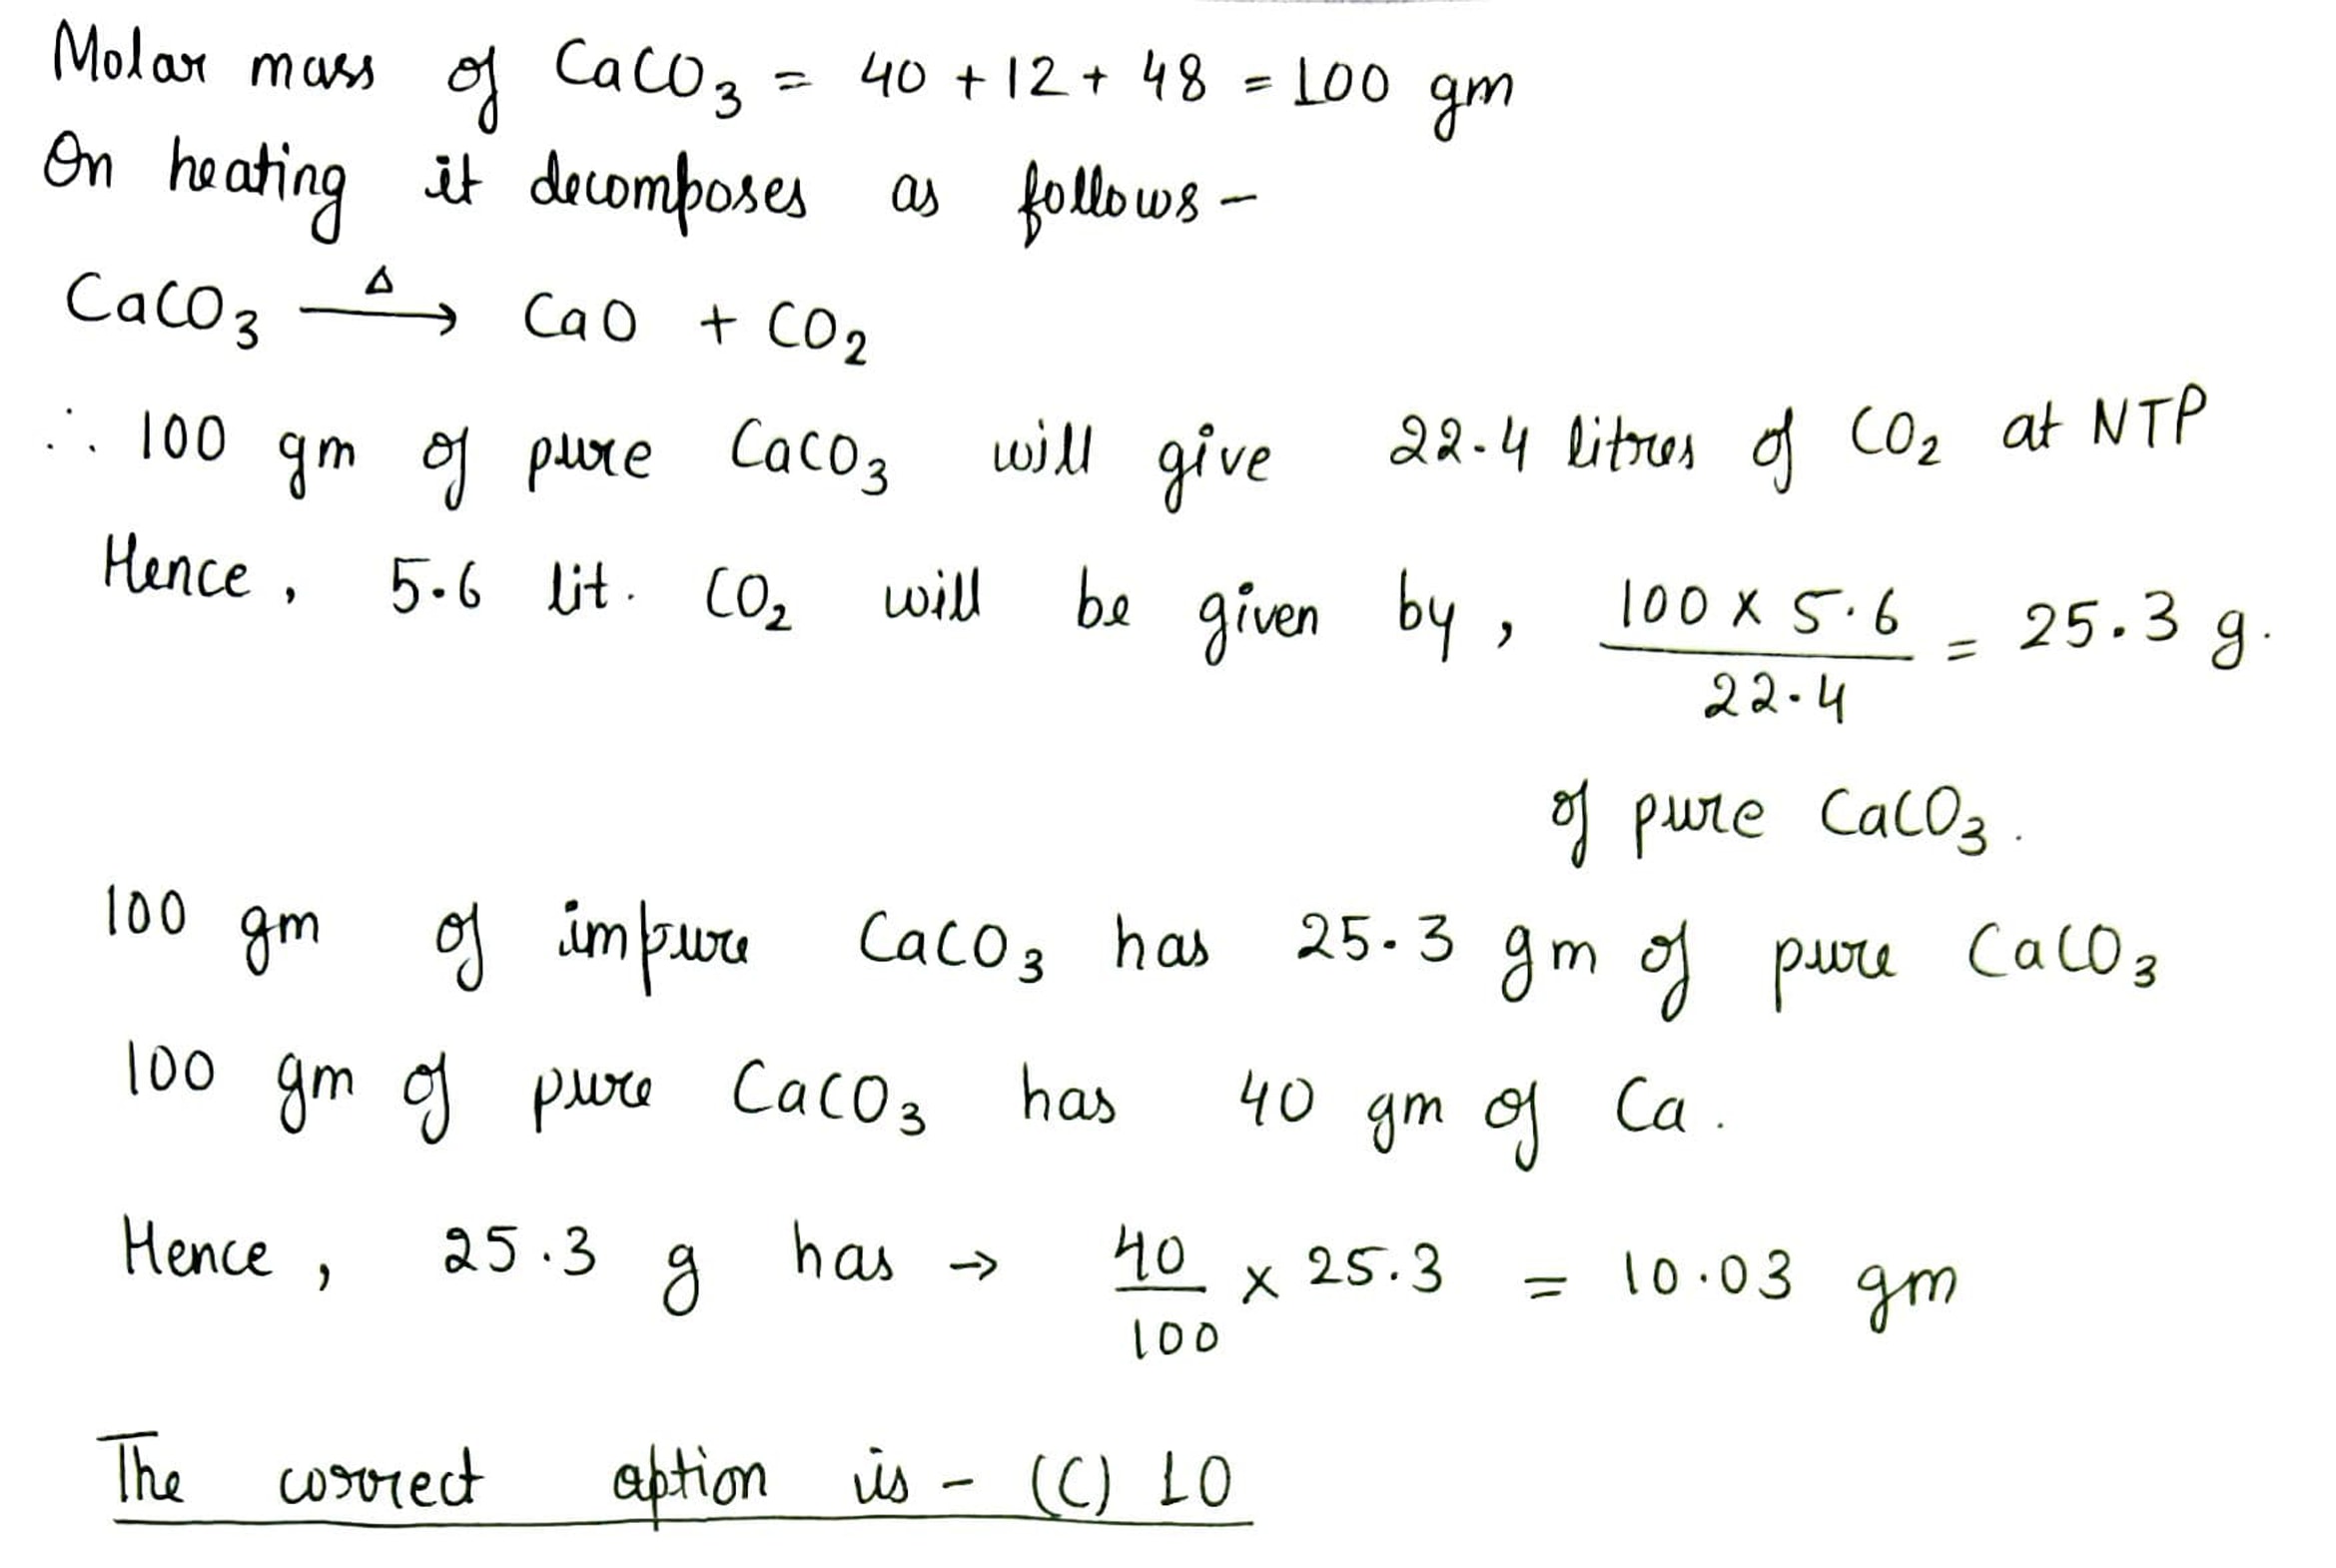 Molar mass of CaCO3 = 40 + 12 + 48 = 100 gm
On heating it decomposes as follows -
CaCO3 —Δ→ CaO + CO2
∴ 100 gm of pure CaCO3 will give 22.4 litres of CO2 at NTP
Hence, 5.6 lit. CO2 will be given by, 100 x 5.6 / 22.4 = 25.3 g.
of pure CaCO3.
100 gm of impure CaCO3 has 25.3 gm of pure CaCO3
100 gm of pure CaCO3 has 40 gm of Ca.
Hence, 25.3 g has → 40/100 x 25.3 = 10.03 gm
The correct option is - (C) 10